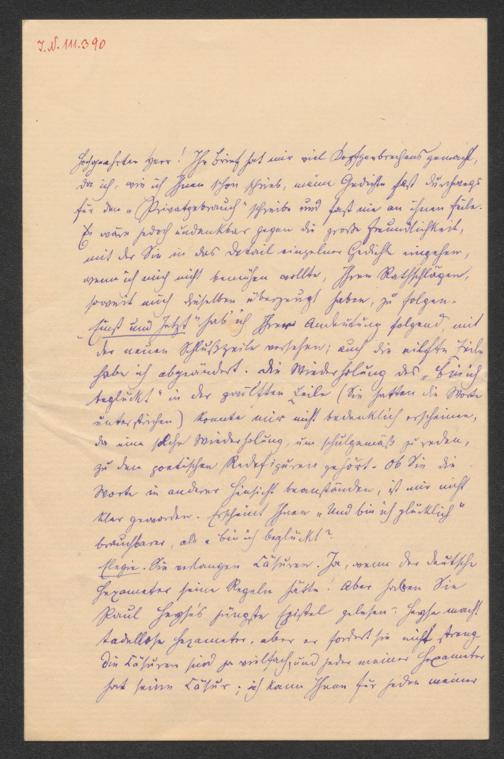 J.N. 111.390
Hochgeehrter Herr! Ihr Brief hat mir viel Kopfzerbrechens gemacht,
da ich, wie ich Ihnen schon schrieb, meine Gedichte fast durchwegs
für den „Privatgebrauch“ schreibe und fast nie an ihnen feile.
Es wäre jedoch undenkbar gegen die große Freundlichkeit,
mit der Sie in das Detail einzelner Gedichte eingehen,
wenn ich mich nicht bemühen wollte, Ihren Rathschlägen,
soweit mich dieselben überzeugt haben, zu folgen.
„Einst und Jetzt“ hab' ich Ihrer Andeutung folgend, mit
der neuen Schlußzeile versehen; auch die eilfte Zeile
habe ich abgeändert. Die Wiederholung des „bin ich
beglückt“ in der zwölften Zeile (Sie hatten die Worte
unterstrichen) konnte mir nicht bedenklich erscheinen,
da eine solche Wiederholung, um schulgemäß zu reden,
zu den poetischen Redefiguren gehört. Ob Sie die
Worte in anderer Hinsicht beanständen, ist mir nicht
klar geworden. Erscheint Ihnen „Und bin ich glücklich“
brauchbarer, als „bin ich beglückt?
Elegie. Sie verlangen Cäsuren. Ja, wenn der deutsche
Hexameter seine Regeln hätte! Aber haben Sie
Paul Heyse's jüngste Epistel gelesen? Heyse macht
tadellose Hexameter, aber er fordert sie nicht streng.
Die Cäsuren sind ja vielfach, und jeder meiner Hexameter
hat seine Cäsur; ich kann Ihnen für jeden meiner